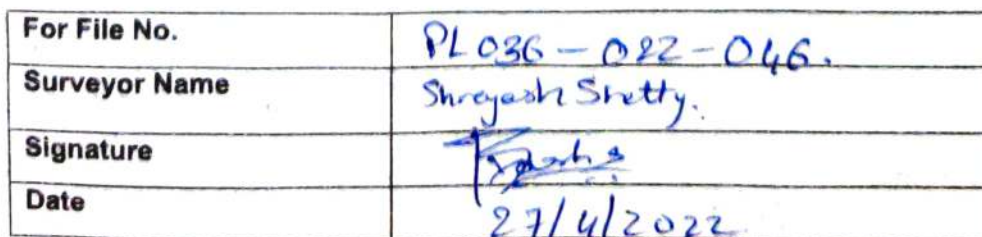 For File No. PL036-022-046.
Surveyor Name Shreyash Shetty.
Signature
Date 27/4/2022